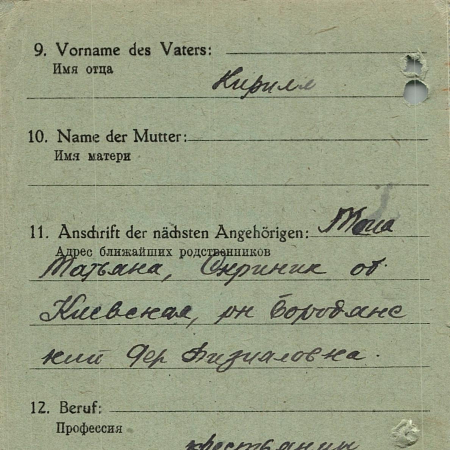 9. Vorname des Vaters:
Имя отца
Кирилл
10. Name der Mutter:
Имя матери
11. Anschrift der nächsten Angehörigen:
Адрес ближайших родственников
Татьяна, Скриник об.
Киевская, рн Бородянс
кий
12. Beruf:
Профессия
крестьянин